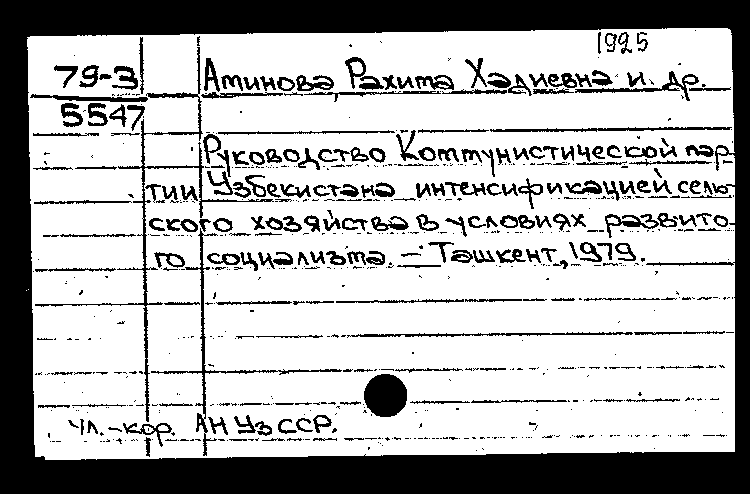 1925
79-3 Аминова, Рахима Хадиевна и др.
5547
Руководство Коммунистической пар-
тии Узбекистана интенсификацией сель-
ского хозяйства в условиях развито-
го социализма. — Ташкент, 1979.
чл.-кор. АН УзССР.